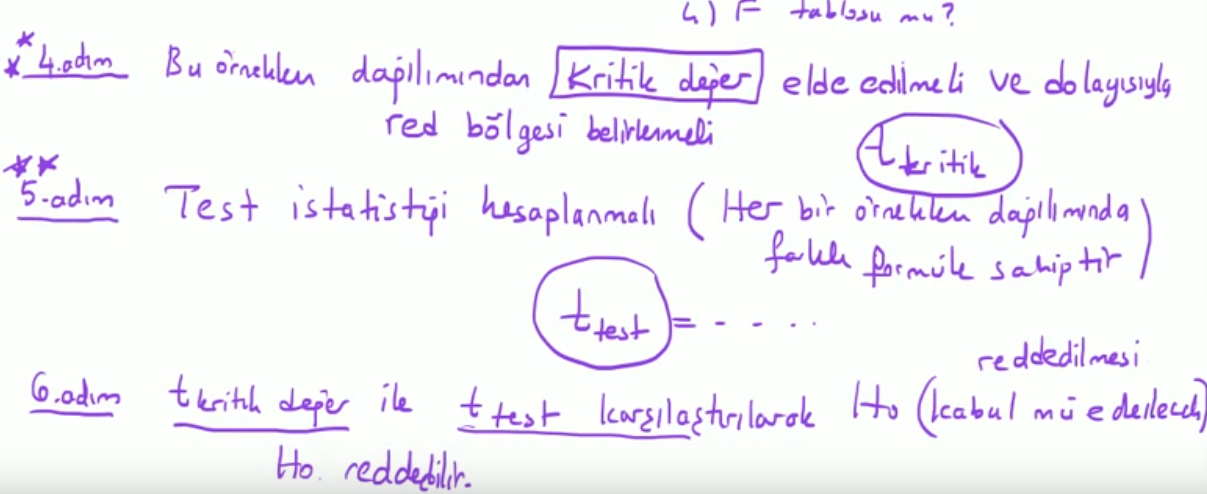 4) F tablosu mu?
4.adım Bu örneklem dağılımından Kritik değer elde edilmeli ve dolayısıyla
red bölgesi belirlenmeli
t kritik
5.adım Test istatistiği hesaplanmalı ( Her bir örneklem dağılımında
farklı formüle sahiptir )
t test = - - - -
reddedilmesi
6.adım t kritik değer ile t test karşılaştırılarak Ho (kabul mü edilecek)
Ho. reddedilir.